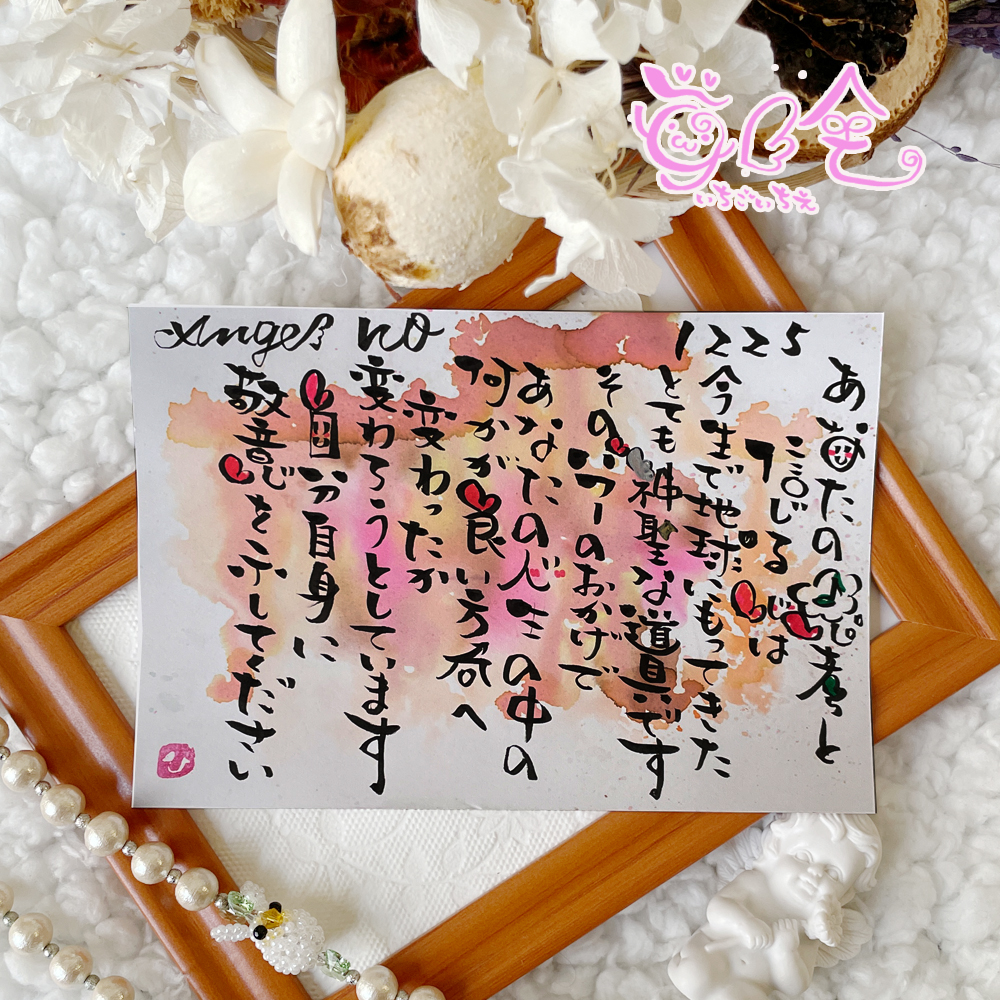 Angel no 1225
あなたの思考と
信じる心は
今生で地球にもってきた
とても神聖な道具です
そのパワーのおかげで
あなたの人生の中の
何かが良い方向へ
変わったか
変わろうとしています
自分自身に
敬意を示してください
いちごいちえ